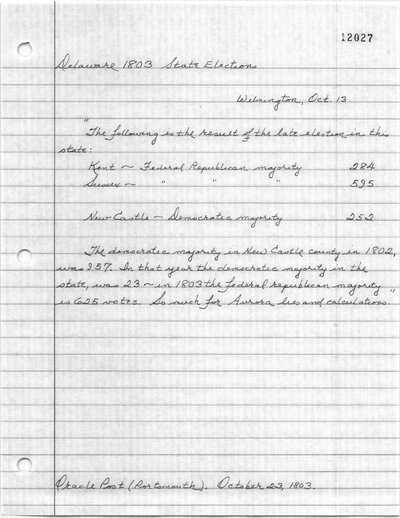 12027
Delaware 1803 State Elections
Wilmington, Oct. 13
"The following is the result of the late election in this
state:
Kent ~ Federal Republican majority 284
Sussex ~ " " " 595
New Castle ~ Democratic majority 252
The democratic majority in New Castle county in 1802,
was 357. In that year the democratic majority in the
state, was 23 ~ in 1803 the federal republican majority
is 625 votes. So much for Aurora lies and calculations"
Oracle Post (Portsmouth). October 23, 1803.